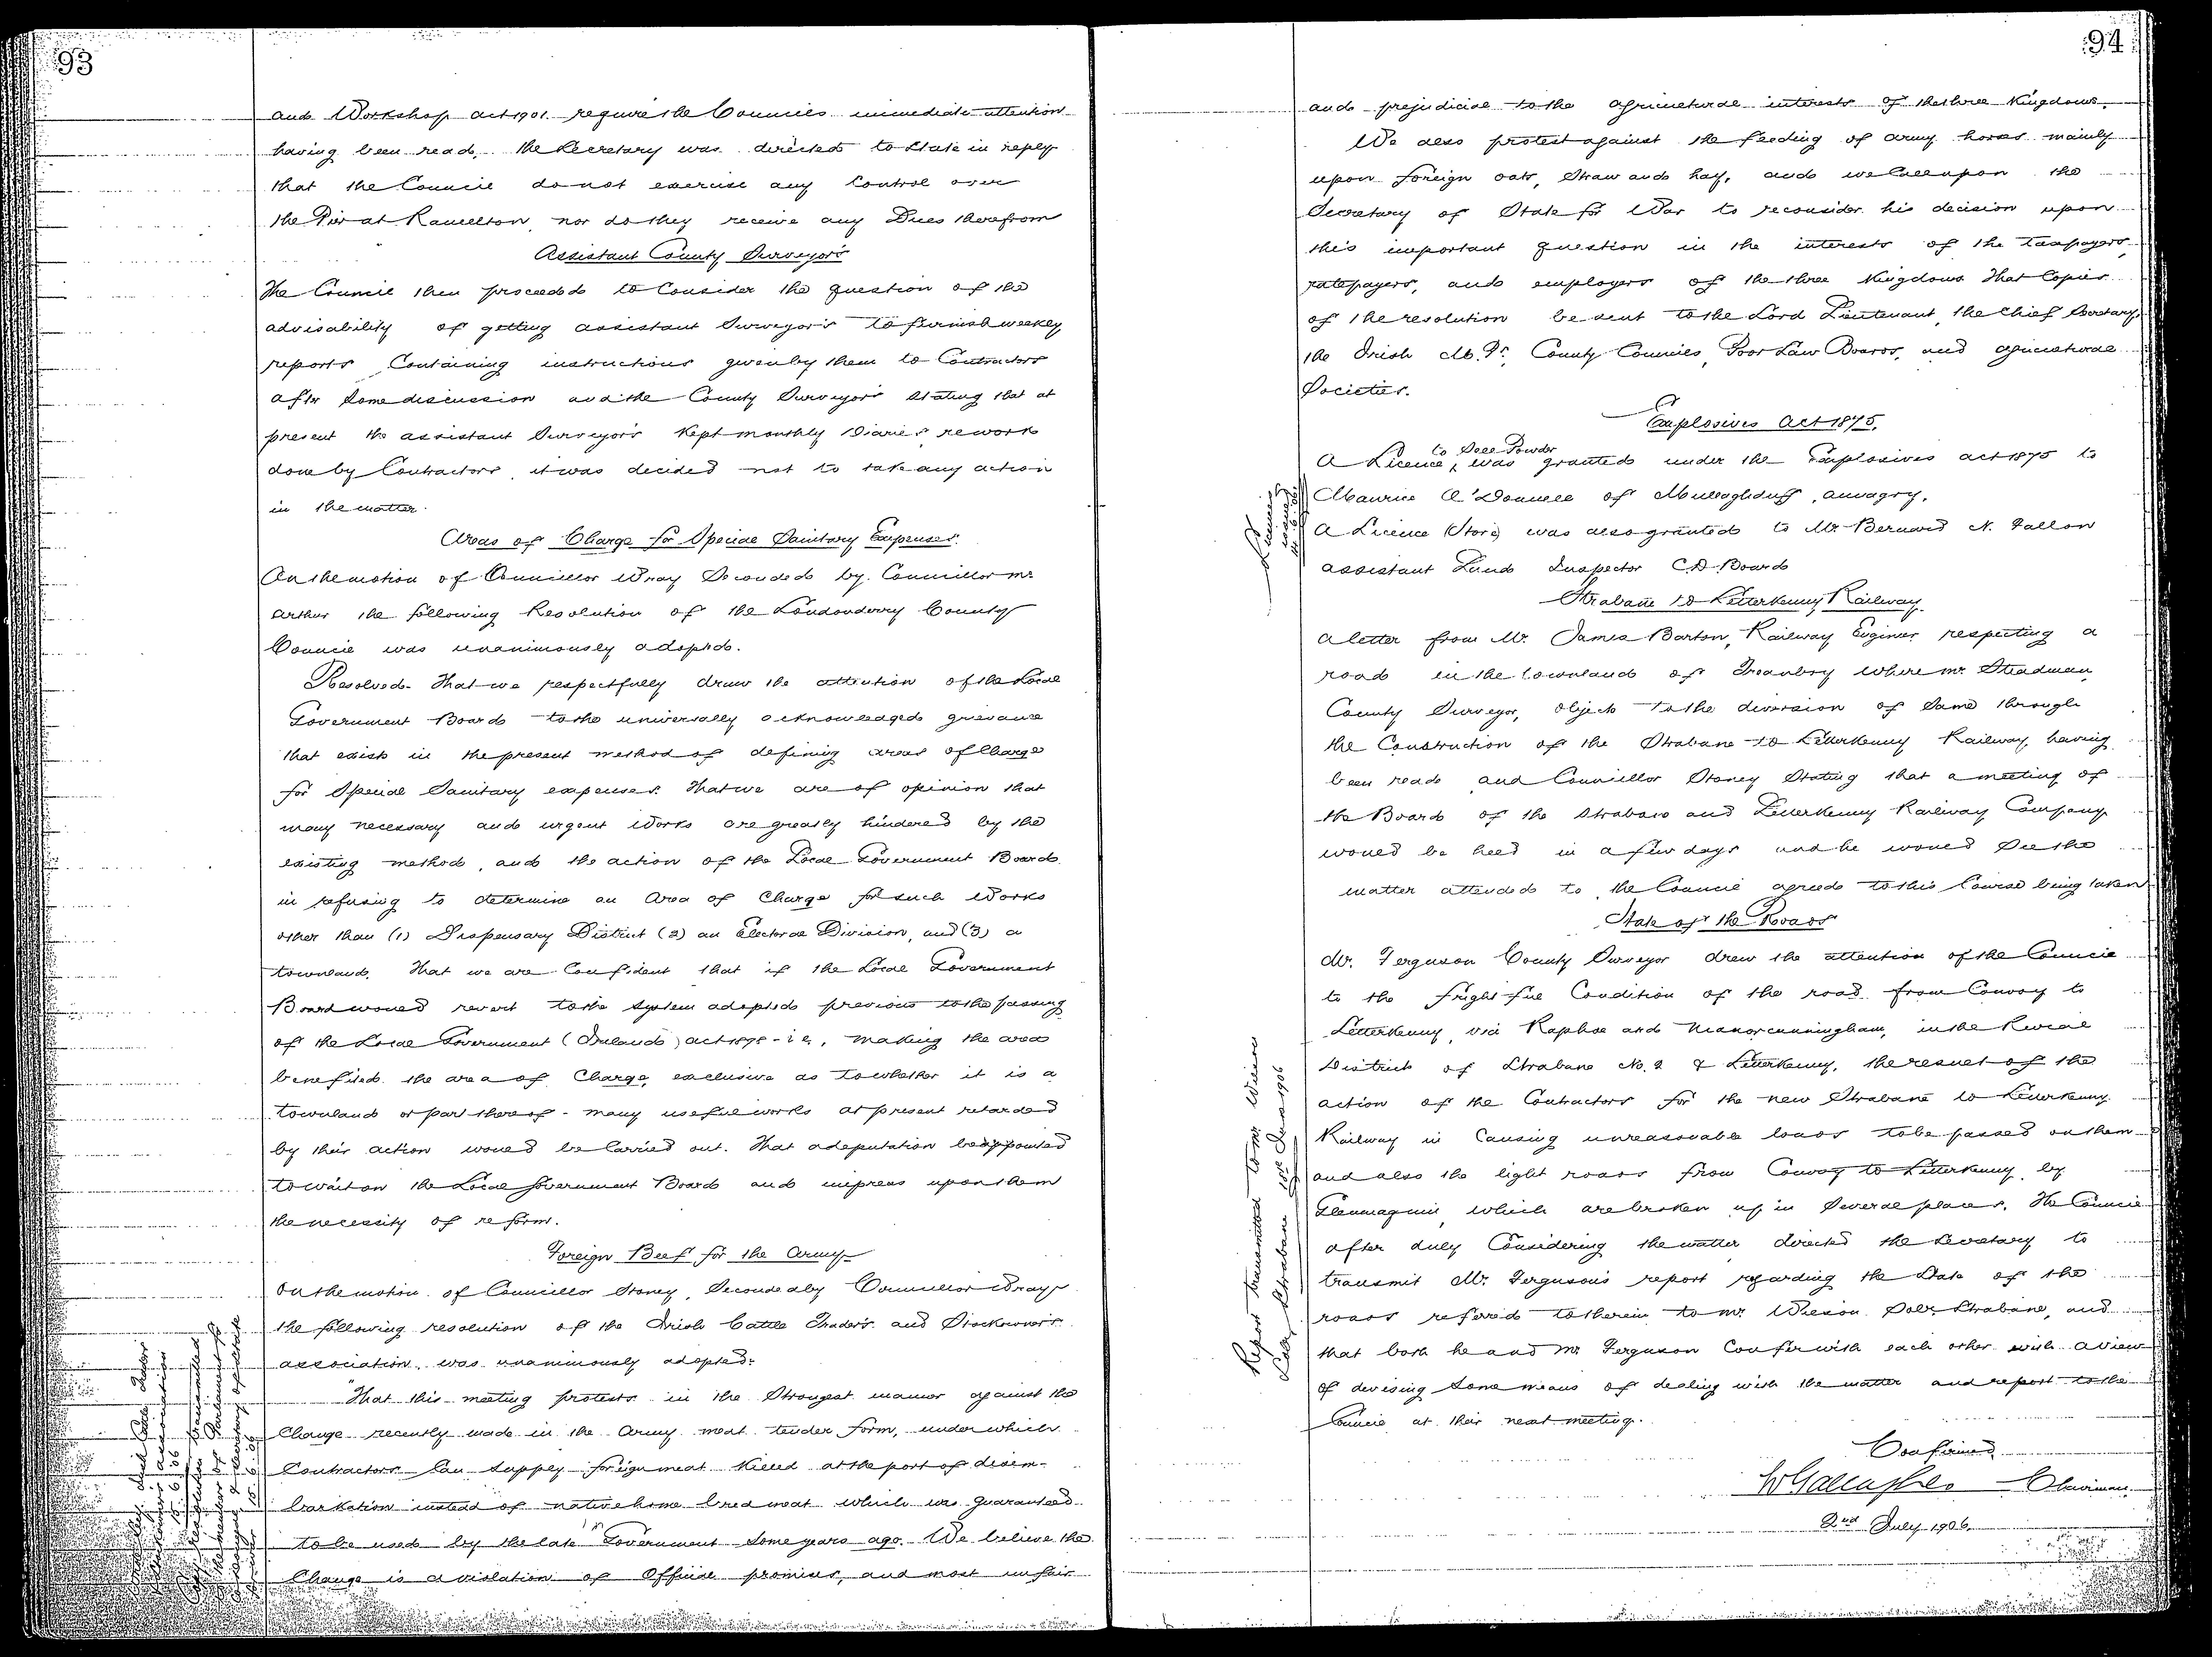 93
and Workshop act 1901. require the Councils immediate attention
having been read, the Secretary was directed to State in reply
that the Council do not exercise any Control over
the Pier at Ramelton, nor do they receive any Dues therefrom
Assistant County Surveyors
The Council then proceeded to Consider the question of the
advisability of getting assistant Surveyors to furnish weekly
reports Containing instructions given by them to Contractors
after Some discussion and the County Surveyors Stating that at
present the assistant Surveyors Kept monthly Diaries re work
done by Contractors, it was decided not to take any action
in the matter.
Areas of Charge for Special Sanitary Expenses.
On the motion of Councillor Wray Seconded by Councillor Mc
Arthur the following Resolution of the Londonderry County
Council was unanimously adopted.
Resolved- That we respectfully draw the attention of the Local
Government Board to the universally acknowledged grievance
that exists in the present method of defining areas of Charge
for Special Sanitary expenses. That we are of opinion that
many necessary and urgent Works are greatly hindered by the
existing method, and the action of the Local Government Board
in refusing to determine an Area of Charge for such Works
other than (1) Dispensary District (2) an Electoral Division, and (3) a
townland. That we are Confident that if the Local Government
Board would revert to the System adopted previous to the passing
of the Local Government (Ireland) act 1898 - i.e., making the area
benefited the area of Charge, exclusive as to whether it is a
townland or part thereof - many useful works at present retarded
by their action would be Carried out. That a deputation be appointed
to wait on the Local Government Board and impress upon them
the necessity of reform.
Foreign Beef for the Army
On the motion of Councillor Stoney, Seconded by Councillor Wray
the following resolution of the Irish Cattle Traders and Stockowners
association was unanimously adopted:
"That this meeting protests in the Strongest manner against the
Change recently made in the Army meat tender form, under which
Contractors Can Supply foreign meat Killed at the port of disem-
barkation instead of native home bred meat which was guaranteed
to be used by the late Government Some years ago. We believe the
Change is a violation of Official promises, and most unfair
94
and prejudicial to the agricultural interests of the three Kingdoms.
We also protest against the feeding of army horses mainly
upon foreign oats, Straw and hay, and we Call upon the
Secretary of State for War to reconsider his decision upon
this important question in the interests of the taxpayers,
ratepayers, and employers of the three Kingdoms That Copies
of the resolution be sent to the Lord Lieutenant, the Chief Secretary
the Irish M.P's, County Councils, Poor Law Boards, and agricultural
Societies.
Explosives Act 1875.
to Sell Powder
A Licence, was granted under the Explosives act 1875 to
Maurice O'Donnell of Mullaghduff, Annagry.
A Licence (Store) was also granted to Mr. Bernard N. Fallon
assistant Land Inspector C.D. Board
Licences
issued
Strabane to Letterkenny Railway
A letter from Mr. James Barton, Railway Engineer respecting a
road in the townland of Treanboy where Mr. Steadman
County Surveyor, objects to the diversion of Same through
the Construction of the Strabane to Letterkenny Railway, having
been read and Councillor Stoney Stating that a meeting of
the Board of the Strabane and Letterkenny Railway Company
would be held in a few days and he would See the
matter attended to, the Council agreed to this Course being taken
State of the Roads
Mr. Ferguson County Surveyor drew the attention of the Council
to the frightful Condition of the road from Convoy to
Letterkenny via Raphoe and Manorcunningham, in the Rural
District of Strabane No. 2 & Letterkenny, the result of the
action of the Contractors for the new Strabane to Letterkenny
Railway in Causing unreasonable loads to be passed on them
and also the light roads from Convoy to Letterkenny by
Glenmaquin which are broken up in Several places. The Council
after duly Considering the matter directed the Secretary to
transmit Mr. Ferguson's report regarding the State of the
roads referred to therein to Mr. Wilson Solr. Strabane, and
that both he and Mr Ferguson Confer with each other with a view
of devising Some means of dealing with the matter and report to the
Council at their next meeting.
Report transmitted to Mr. Wilson
Solr Strabane 15th June 1906
Confirmed
Chairman.
2nd July 1906.